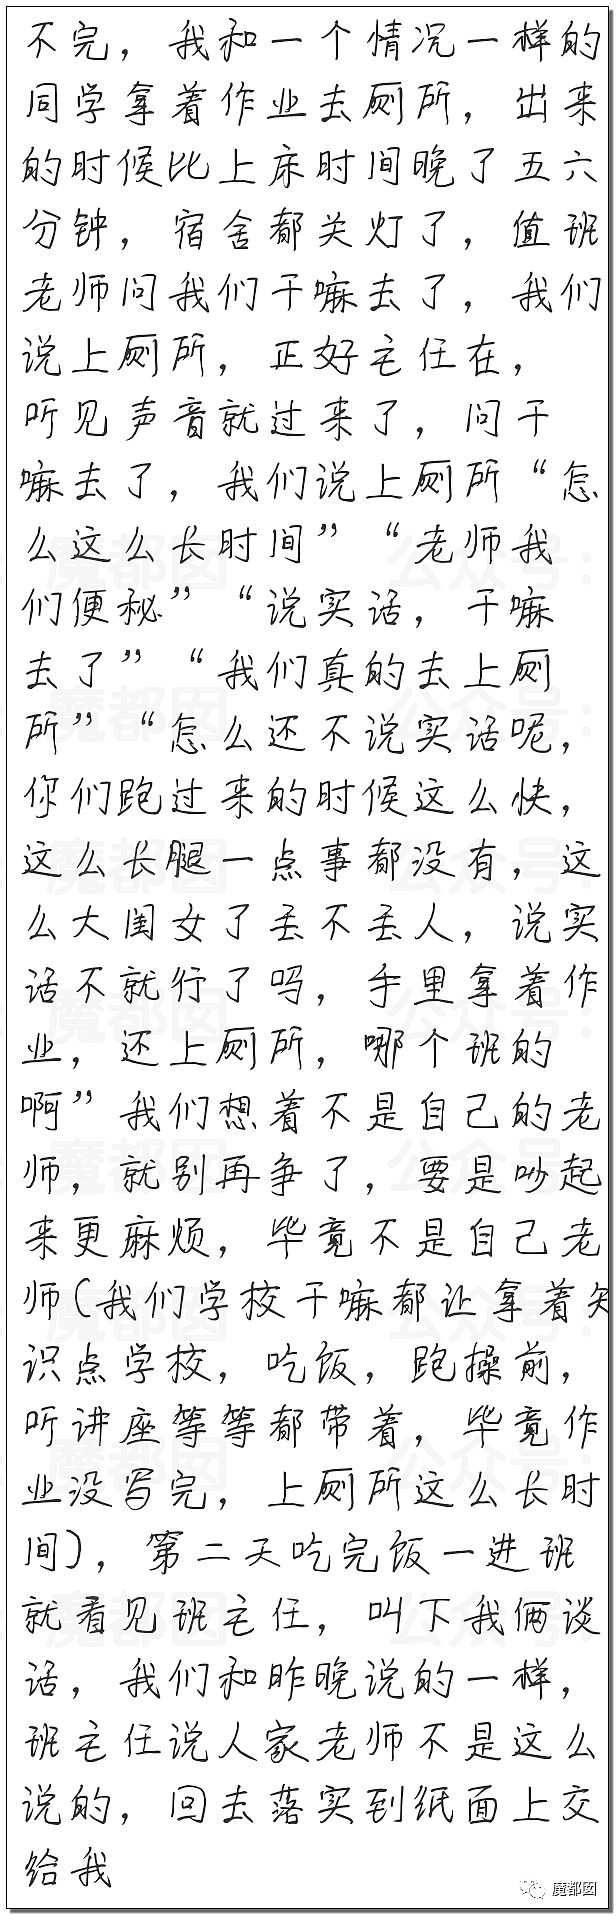 不完，我和一个情况一样的
同学拿着作业去厕所，出来
的时候比上床时间晚了五六
分钟，宿舍都关灯了，值班
老师问我们干嘛去了，我们
说上厕所，正好主任在，
听见声音就过来了，问干
嘛去了，我们说上厕所“怎
么这么长时间”“老师我
们便秘”“说实话，干嘛
去了”“我们真的去上厕
所”“怎么还不说实话呢，
你们跑过来的时候这么快，
这么长腿一点事都没有，这
么大闺女了丢不丢人，说实
话不就行了吗，手里拿着作
业，还上厕所，哪个班的
啊”我们想着不是自己的老
师，就别再争了，要是吵起
来更麻烦，毕竟不是自己老
师(我们学校干嘛都让拿着知
识点学校，吃饭，跑操前，
听讲座等等都带着，毕竟作
业没写完，上厕所这么长时
间)，第二天吃完饭一进班
就看见班主任，叫下我俩谈
话，我们和昨晚说的一样，
班主任说人家老师不是这么
说的，回去落实到纸面上交
给我
魔都囡
公众号：
魔都囡